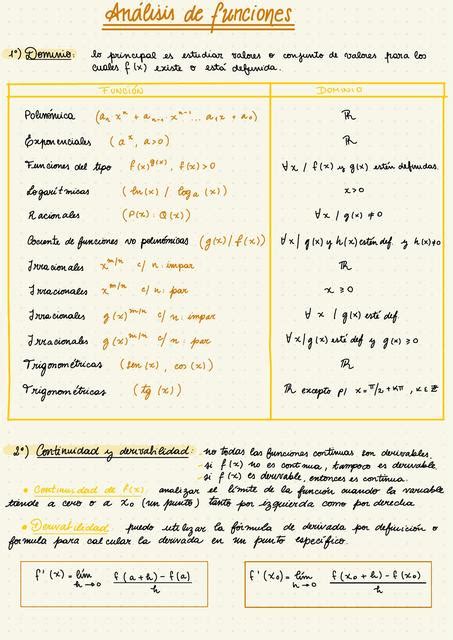 Análisis de funciones
1º) Dominio: lo principal es estudiar valores o conjunto de valores para los
cuales f(x) existe o está definida.
FUNCIÓN DOMINIO
Polinómica (aₙ xⁿ + aₙ₋₁ xⁿ⁻¹ ... a₁x + a₀) ℝ
Exponenciales (aˣ, a>0) ℝ
Funciones del tipo f(x)^g(x), f(x)>0 ∀x / f(x) y g(x) están definidas.
Logarítmicas (ln(x) / logₐ(x)) x>0
Racionales (P(x) : Q(x)) ∀x / g(x) ≠0
Cociente de funciones no polinómicas (g(x)/f(x)) ∀x / g(x) y h(x) están def. y h(x)≠0
Irracionales x^m/n c/ n: impar ℝ
Irracionales x^m/n c/ n: par x ≥0
Irracionales g(x)^m/n c/ n: impar ∀ x / g(x) esté def.
Irracionales g(x)^m/n c/ n: par ∀x/g(x) esté def y g(x) ≥0
Trigonométricas (sen(x), cos(x)) ℝ
Trigonométricas (tg(x)) ℝ excepto p/ x=π/2+κπ, κ∈ℤ
2º) Continuidad y derivabilidad: - no todas las funciones continuas son derivables.
- si f(x) no es continua, tampoco es derivable
- si f(x) es derivable, entonces es continua.
• Continuidad de f(x): analizar el límite de la función cuando la variable
tiende a cero o a x₀ (un punto) tanto por izquierda como por derecha
• Derivabilidad: puedo utilizar la fórmula de derivada por definición o
fórmula para calcular la derivada en un punto específico.
f'(x) = lím h→0 f(a+h)-f(a) / h
f'(x₀) = lím h→0 f(x₀+h)-f(x₀) / h